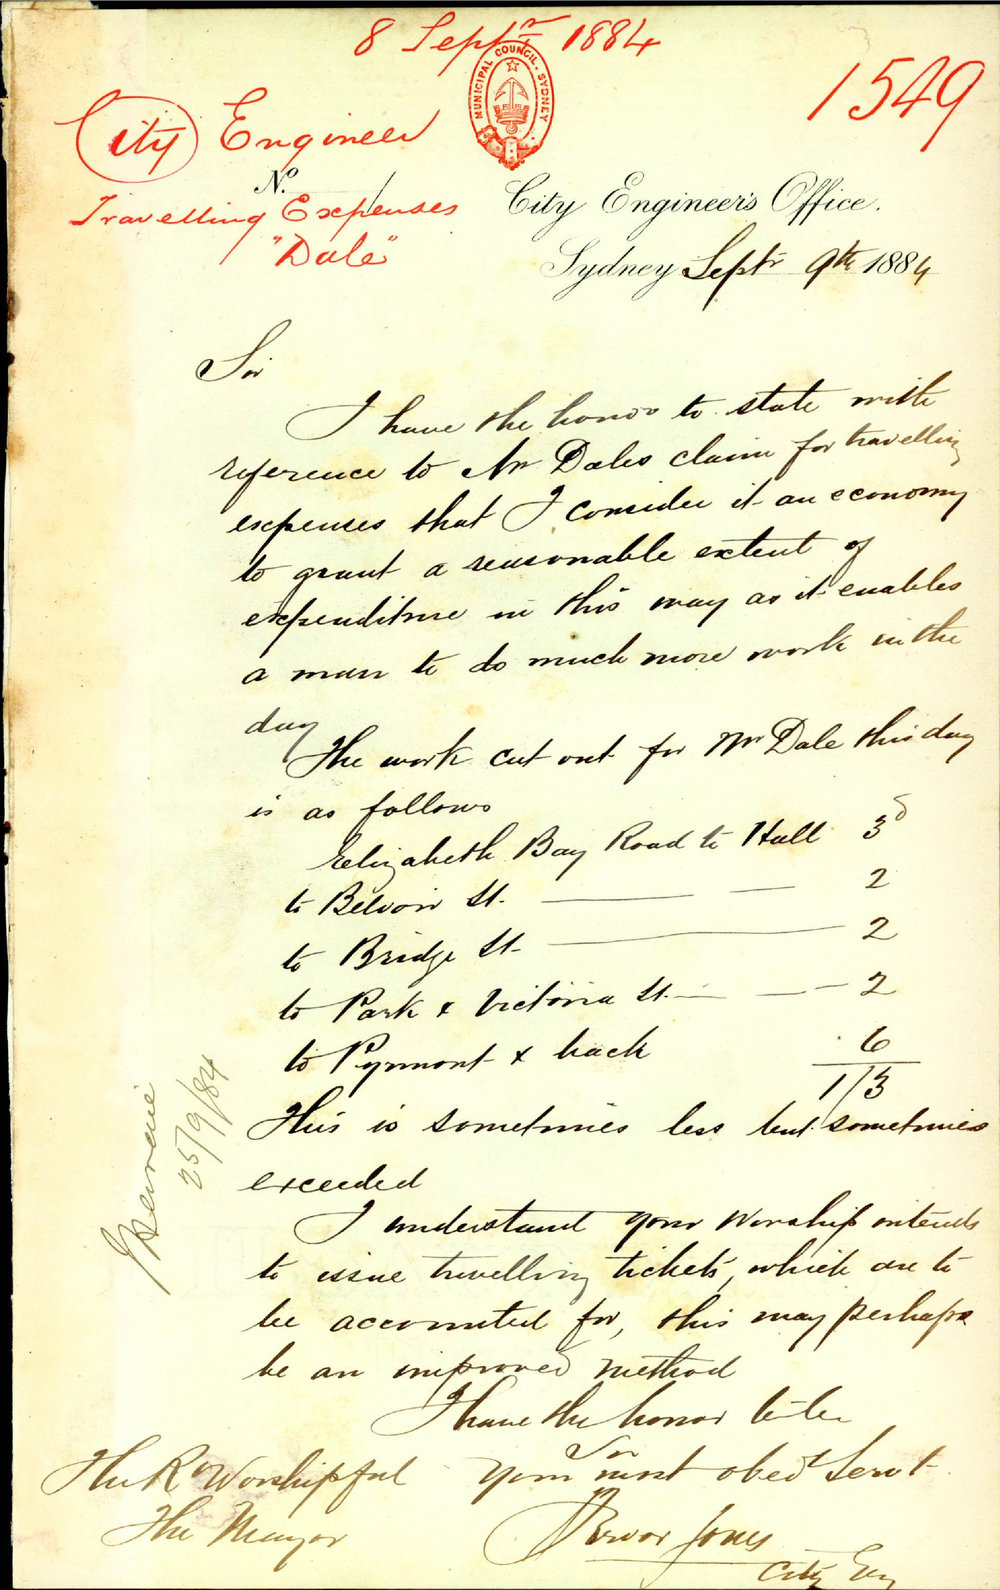 8 Septr 1884
MUNICIPAL COUNCIL. SYDNEY
1549
City Engineer
No.
Travelling Expenses
"Dale"
City Engineer's Office.
Sydney Septr 9th 1884
Sir
I have the honor to state with
reference to Mr Dales claim for travelling
expenses that I consider it an economy
to grant a reasonable extent of
expenditure in this way as it enables
a man to do much more work in the
day
The work cut out for Mr Dale this day
is as follows
Elizabeth Bay Road to Hall 3d
to Belvoir St. 2
to Bridge St 2
to Park & Victoria St. 2
to Pyrmont & back 6
1/3
This is sometimes less but sometimes
exceeded
I understand your Worship intends
to issue travelling tickets, which are to
be accounted for, this may perhaps
be an improved method
I have the honor to be
Sir
your most obedt Servt
The Rt Worshipful
The Mayor
Trevor Jones
City Eng
25/9/84